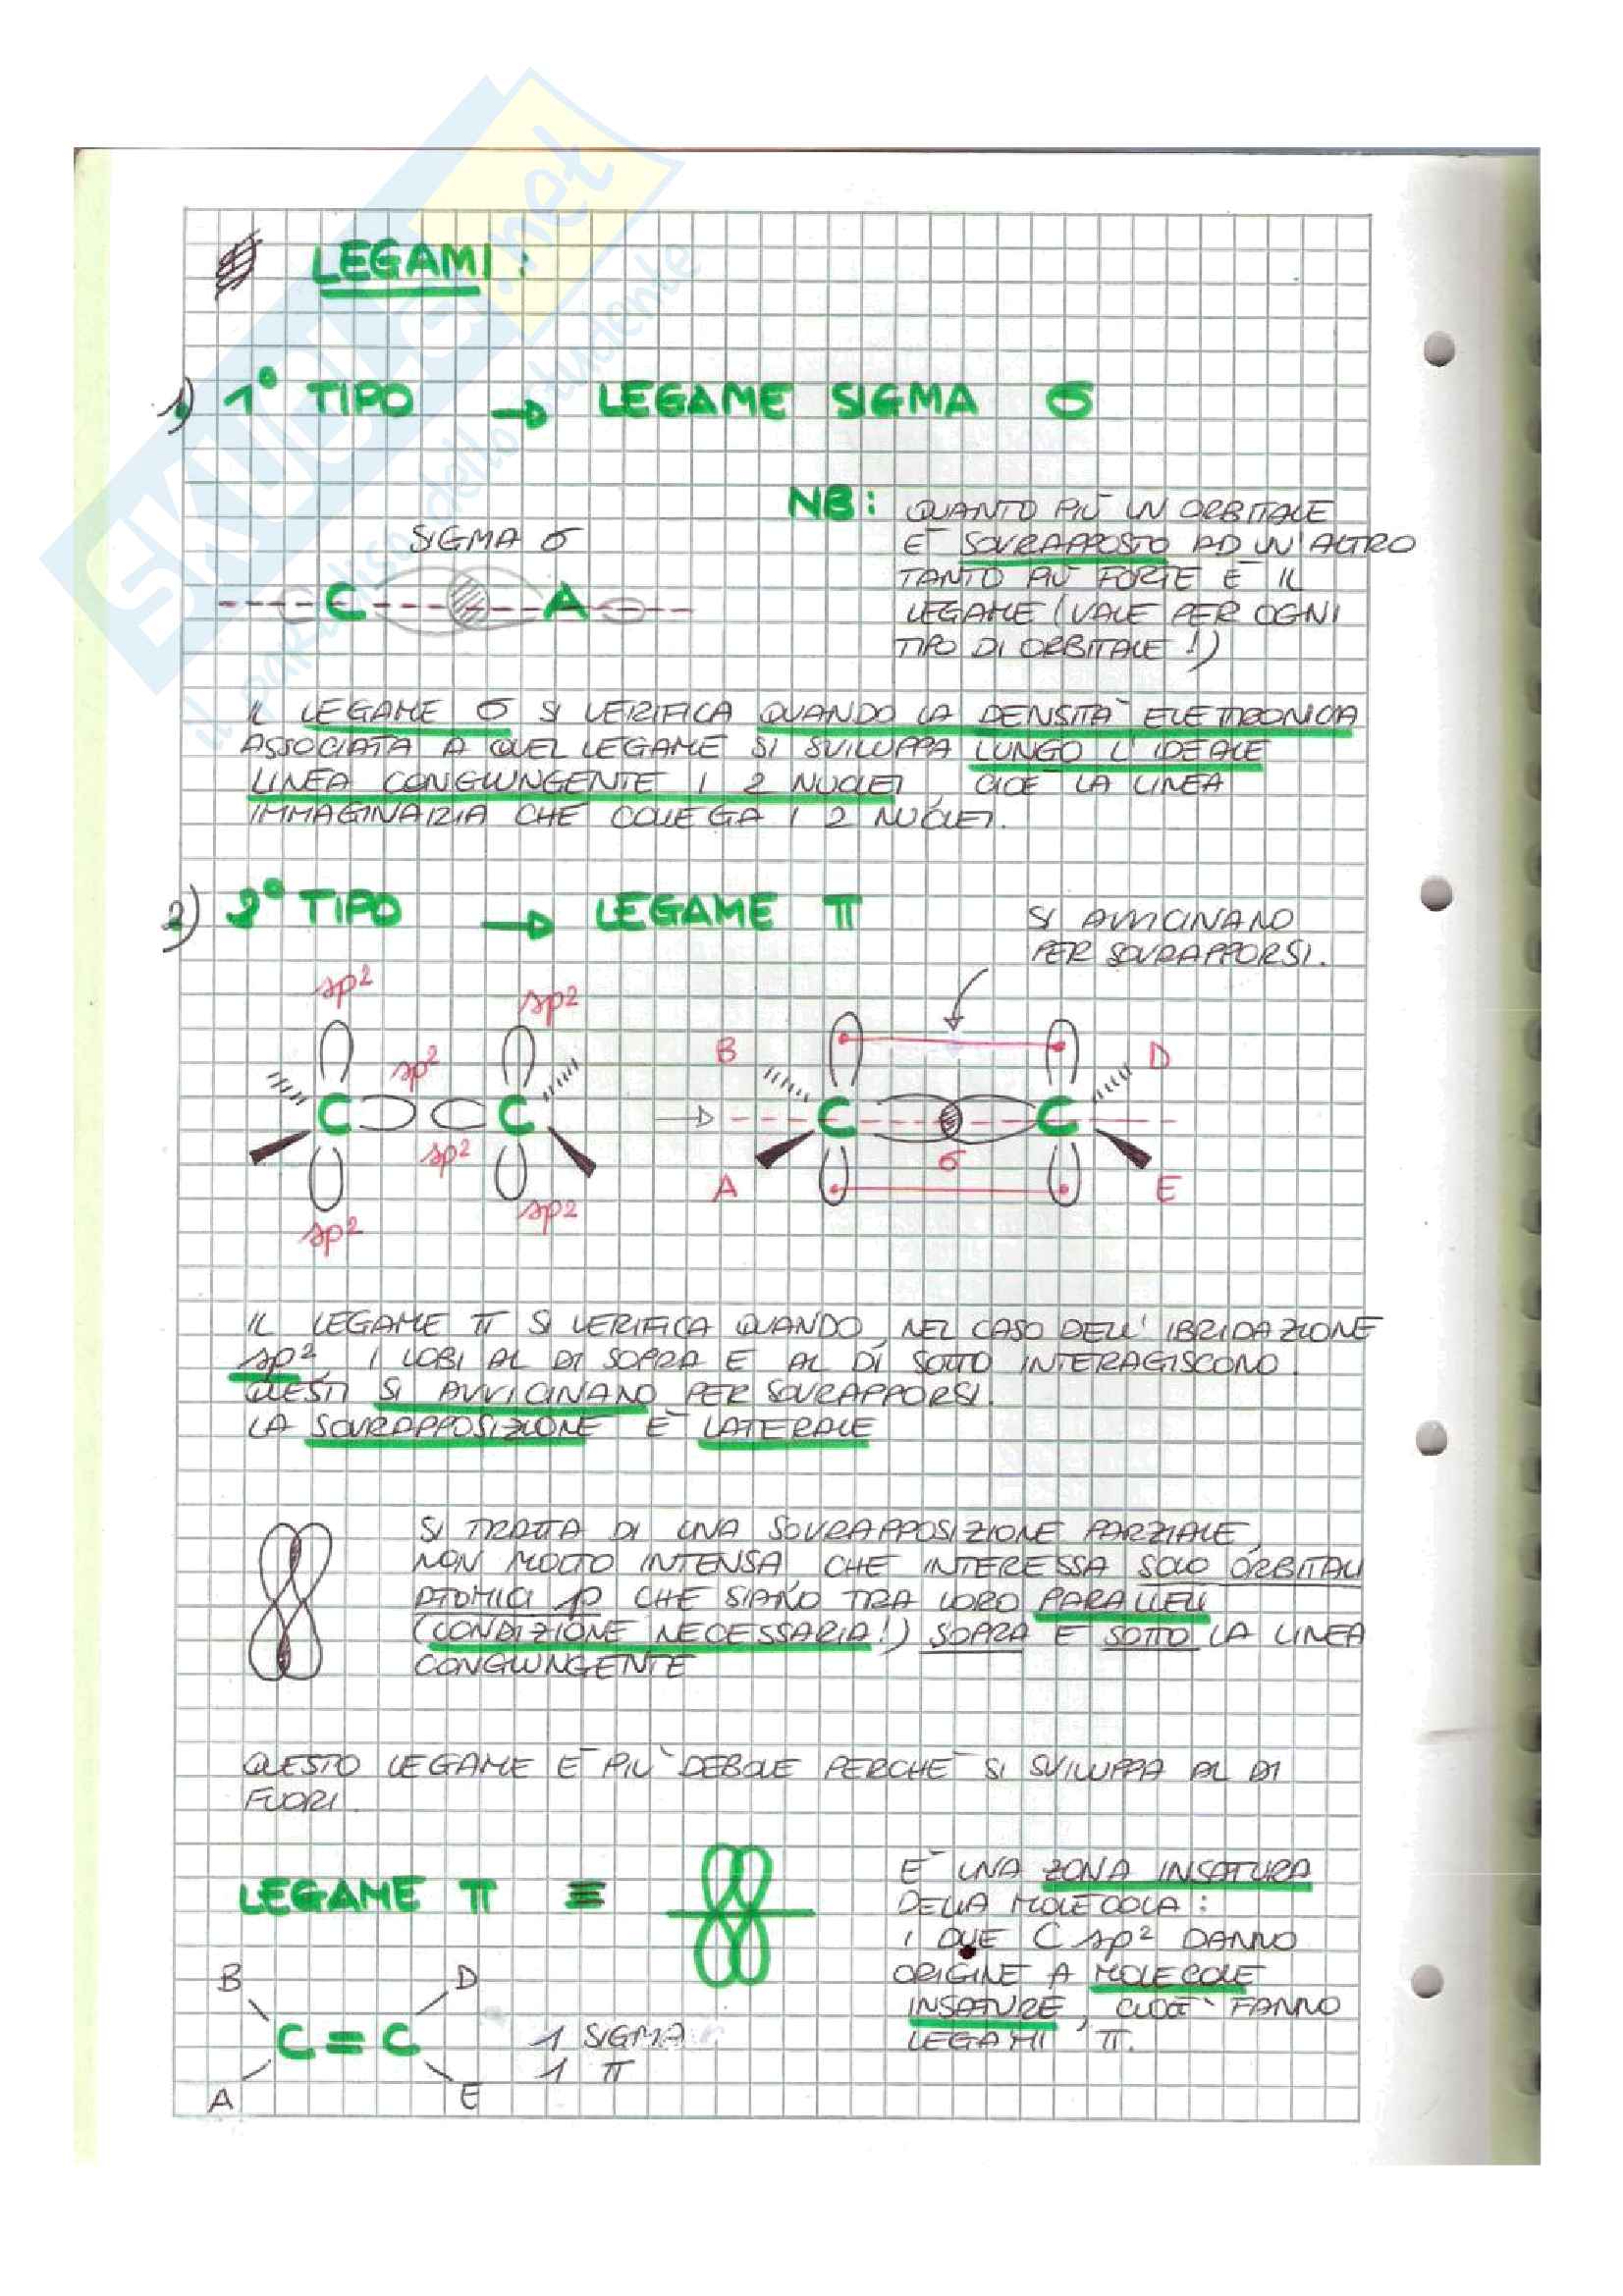 SKUOLA.net
il paradiso dello studente
LEGAMI:
1) 1° TIPO → LEGAME SIGMA σ
NB: QUANTO PIÙ UN ORBITALE
È SOVRAPPOSTO AD UN ALTRO
TANTO PIÙ FORTE È IL
LEGAME (VALE PER OGNI
TIPO DI ORBITALE!)
SIGMA σ
C A
IL LEGAME σ SI VERIFICA QUANDO LA DENSITÀ ELETTRONICA
ASSOCIATA A QUEL LEGAME SI SVILUPPA LUNGO L'IDEALE
LINEA CONGIUNGENTE I 2 NUCLEI, CIOÈ LA LINEA
IMMAGINARIA CHE COLLEGA I 2 NUCLEI.
2) 2° TIPO → LEGAME π
SI AVVICINANO
PER SOVRAPPORSI.
sp² sp²
sp²
C C
sp²
sp² sp²
→
B D
C C
σ
A E
IL LEGAME π SI VERIFICA QUANDO, NEL CASO DELL'IBRIDAZIONE
sp², I LOBI AL DI SOPRA E AL DI SOTTO INTERAGISCONO.
QUESTI SI AVVICINANO PER SOVRAPPORSI.
LA SOVRAPPOSIZIONE È LATERALE
SI TRATTA DI UNA SOVRAPPOSIZIONE PARZIALE,
NON MOLTO INTENSA, CHE INTERESSA SOLO ORBITALI
ATOMICI p CHE SIANO TRA LORO PARALLELI
(CONDIZIONE NECESSARIA!) SOPRA E SOTTO LA LINEA
CONGIUNGENTE
QUESTO LEGAME È PIÙ DEBOLE PERCHÉ SI SVILUPPA AL DI
FUORI.
LEGAME π ≡
È UNA ZONA INSATURA
DELLA MOLECOLA:
I DUE C sp² DANNO
ORIGINE A MOLECOLE
INSATURE, CIOÈ FANNO
LEGAMI π.
B D
C = C
A E
1 SIGMA
1 π